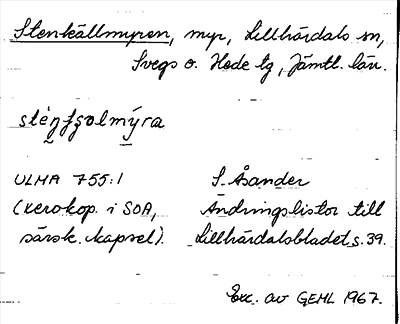 Stenkällmyren, myr, Lillhärdals sn,
Svegs o. Hede tg, Jämtl. län.
stèŋʃʂolmýra
ULMA 755:1 S. Åsander
(xerokop. i SOA, Ändringslistor till
särsk. kapsel). Lillhärdalsbladet s. 39.
Exc. av GEHL 1967.